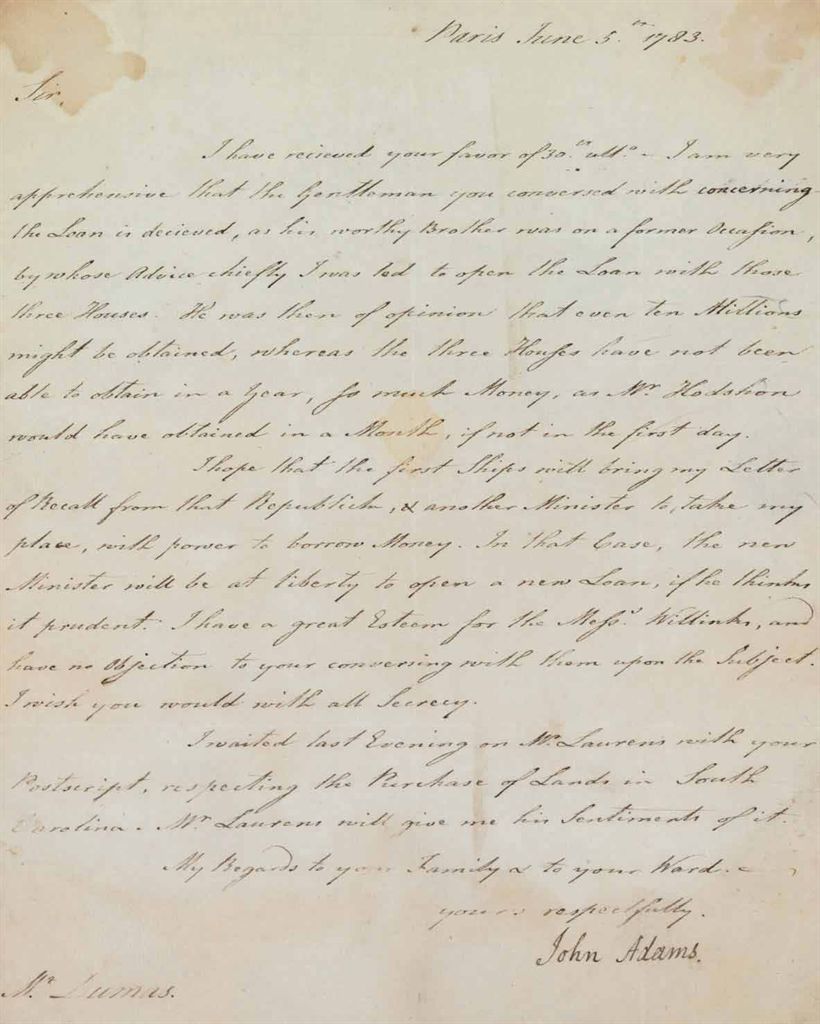 Paris June 5.th 1783.
Sir,
I have recieved your favor of 30.th ulto. - I am very
apprehensive that the Gentleman you conversed with concerning
the Loan is decieved, as his worthy Brother was on a former Occasion,
by whose Advice chiefly I was led to open the Loan with those
three Houses. He was then of opinion that even ten Millions
might be obtained, whereas the three Houses have not been
able to obtain in a Year, so much Money, as Mr. Hodshon
would have obtained in a Month, if not in the first day.
I hope that the first Ships will bring my Letter
of Recall from that Republick, & another Minister to take my
place, with power to borrow Money. In that Case, the new
Minister will be at liberty to open a new Loan, if he thinks
it prudent. I have a great Esteem for the Messrs. Willinks, and
have no Objection to your conversing with them upon the Subject.
I wish you would with all Secrecy.
I waited last Evening on Mr. Laurens with your
Postscript, respecting the Purchase of Lands in South
Carolina. Mr. Laurens will give me his Sentiments of it.
My Regards to your Family & to your Ward. -
yours respectfully.
John Adams.
Mr. Dumas.